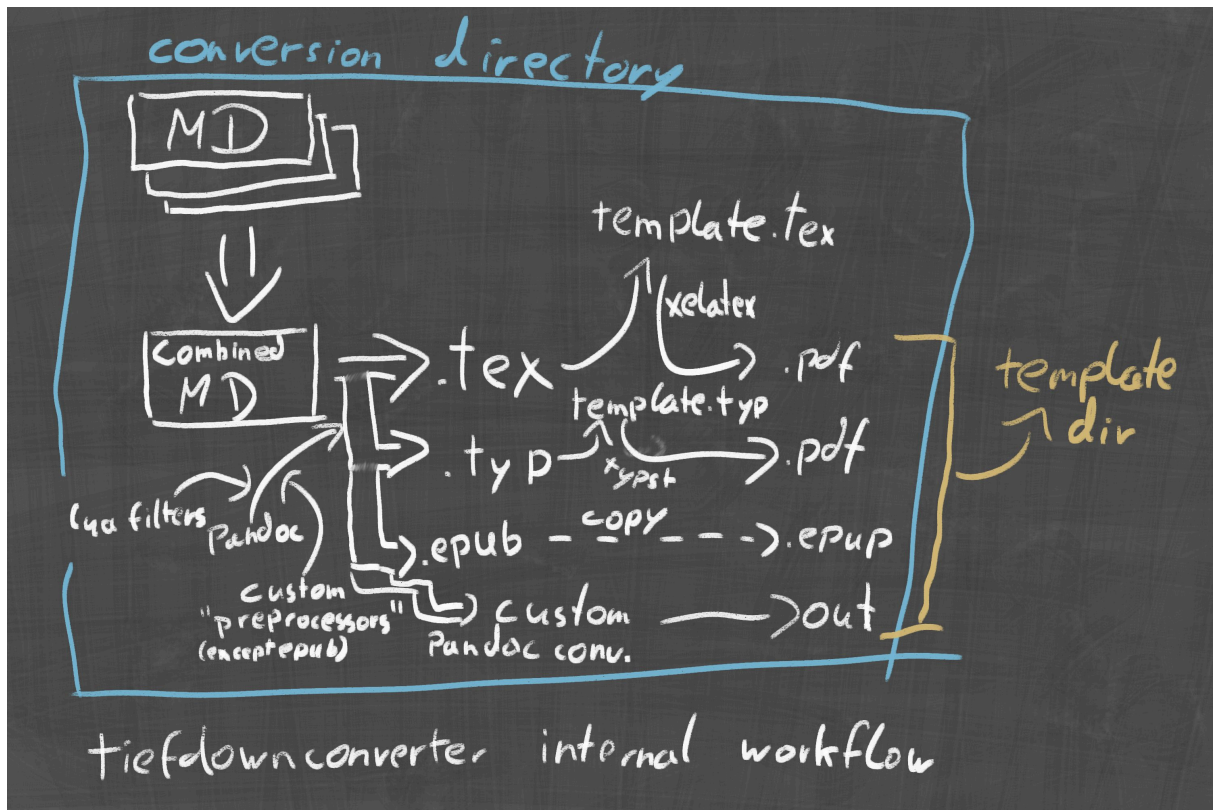 conversion directory
MD
template.tex
xelatex
Combined
MD
.tex
.pdf
template
dir
template.typ
.typ
typst
.pdf
lua filters
Pandoc
.epub
copy
.epup
custom
"preprocessors"
(except epub)
custom
Pandoc conv.
out
tiefdownconverter internal workflow